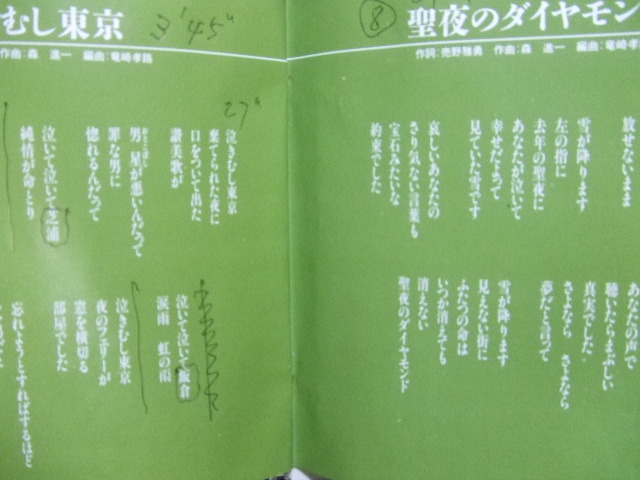 聖夜のダイヤモン
作詞:売野雅勇　作曲:森　進一　編曲:竜崎孝路
放せないまま
雪が降ります
左の指に
去年の聖夜に
あなたが泣いて
幸せだよって
見ていた雪です
哀しいあなたの
さり気ない言葉も
宝石みたいな
約束でした
あなたの声で
聴いたらまぶしい
真実でした
さよなら　さよなら
夢だと言って
雪が降ります
見えない街に
ふたつの命は
いつか消えても
消えない
聖夜のダイヤモンド
⑧
むし東京
作曲:森　進一　編曲:竜崎孝路
3'45"
27"
泣きむし東京
棄てられた夜に
口をついて出た
讃美歌が
男 星が悪いんだって
罪な男に
惚れるんだって
泣いて泣いて芝浦
純情が命とり
泣いて泣いて飯倉
涙雨　虹の雨
泣きむし東京
夜のフェリーが
窓を横切る
部屋でした
忘れようとすればするほど